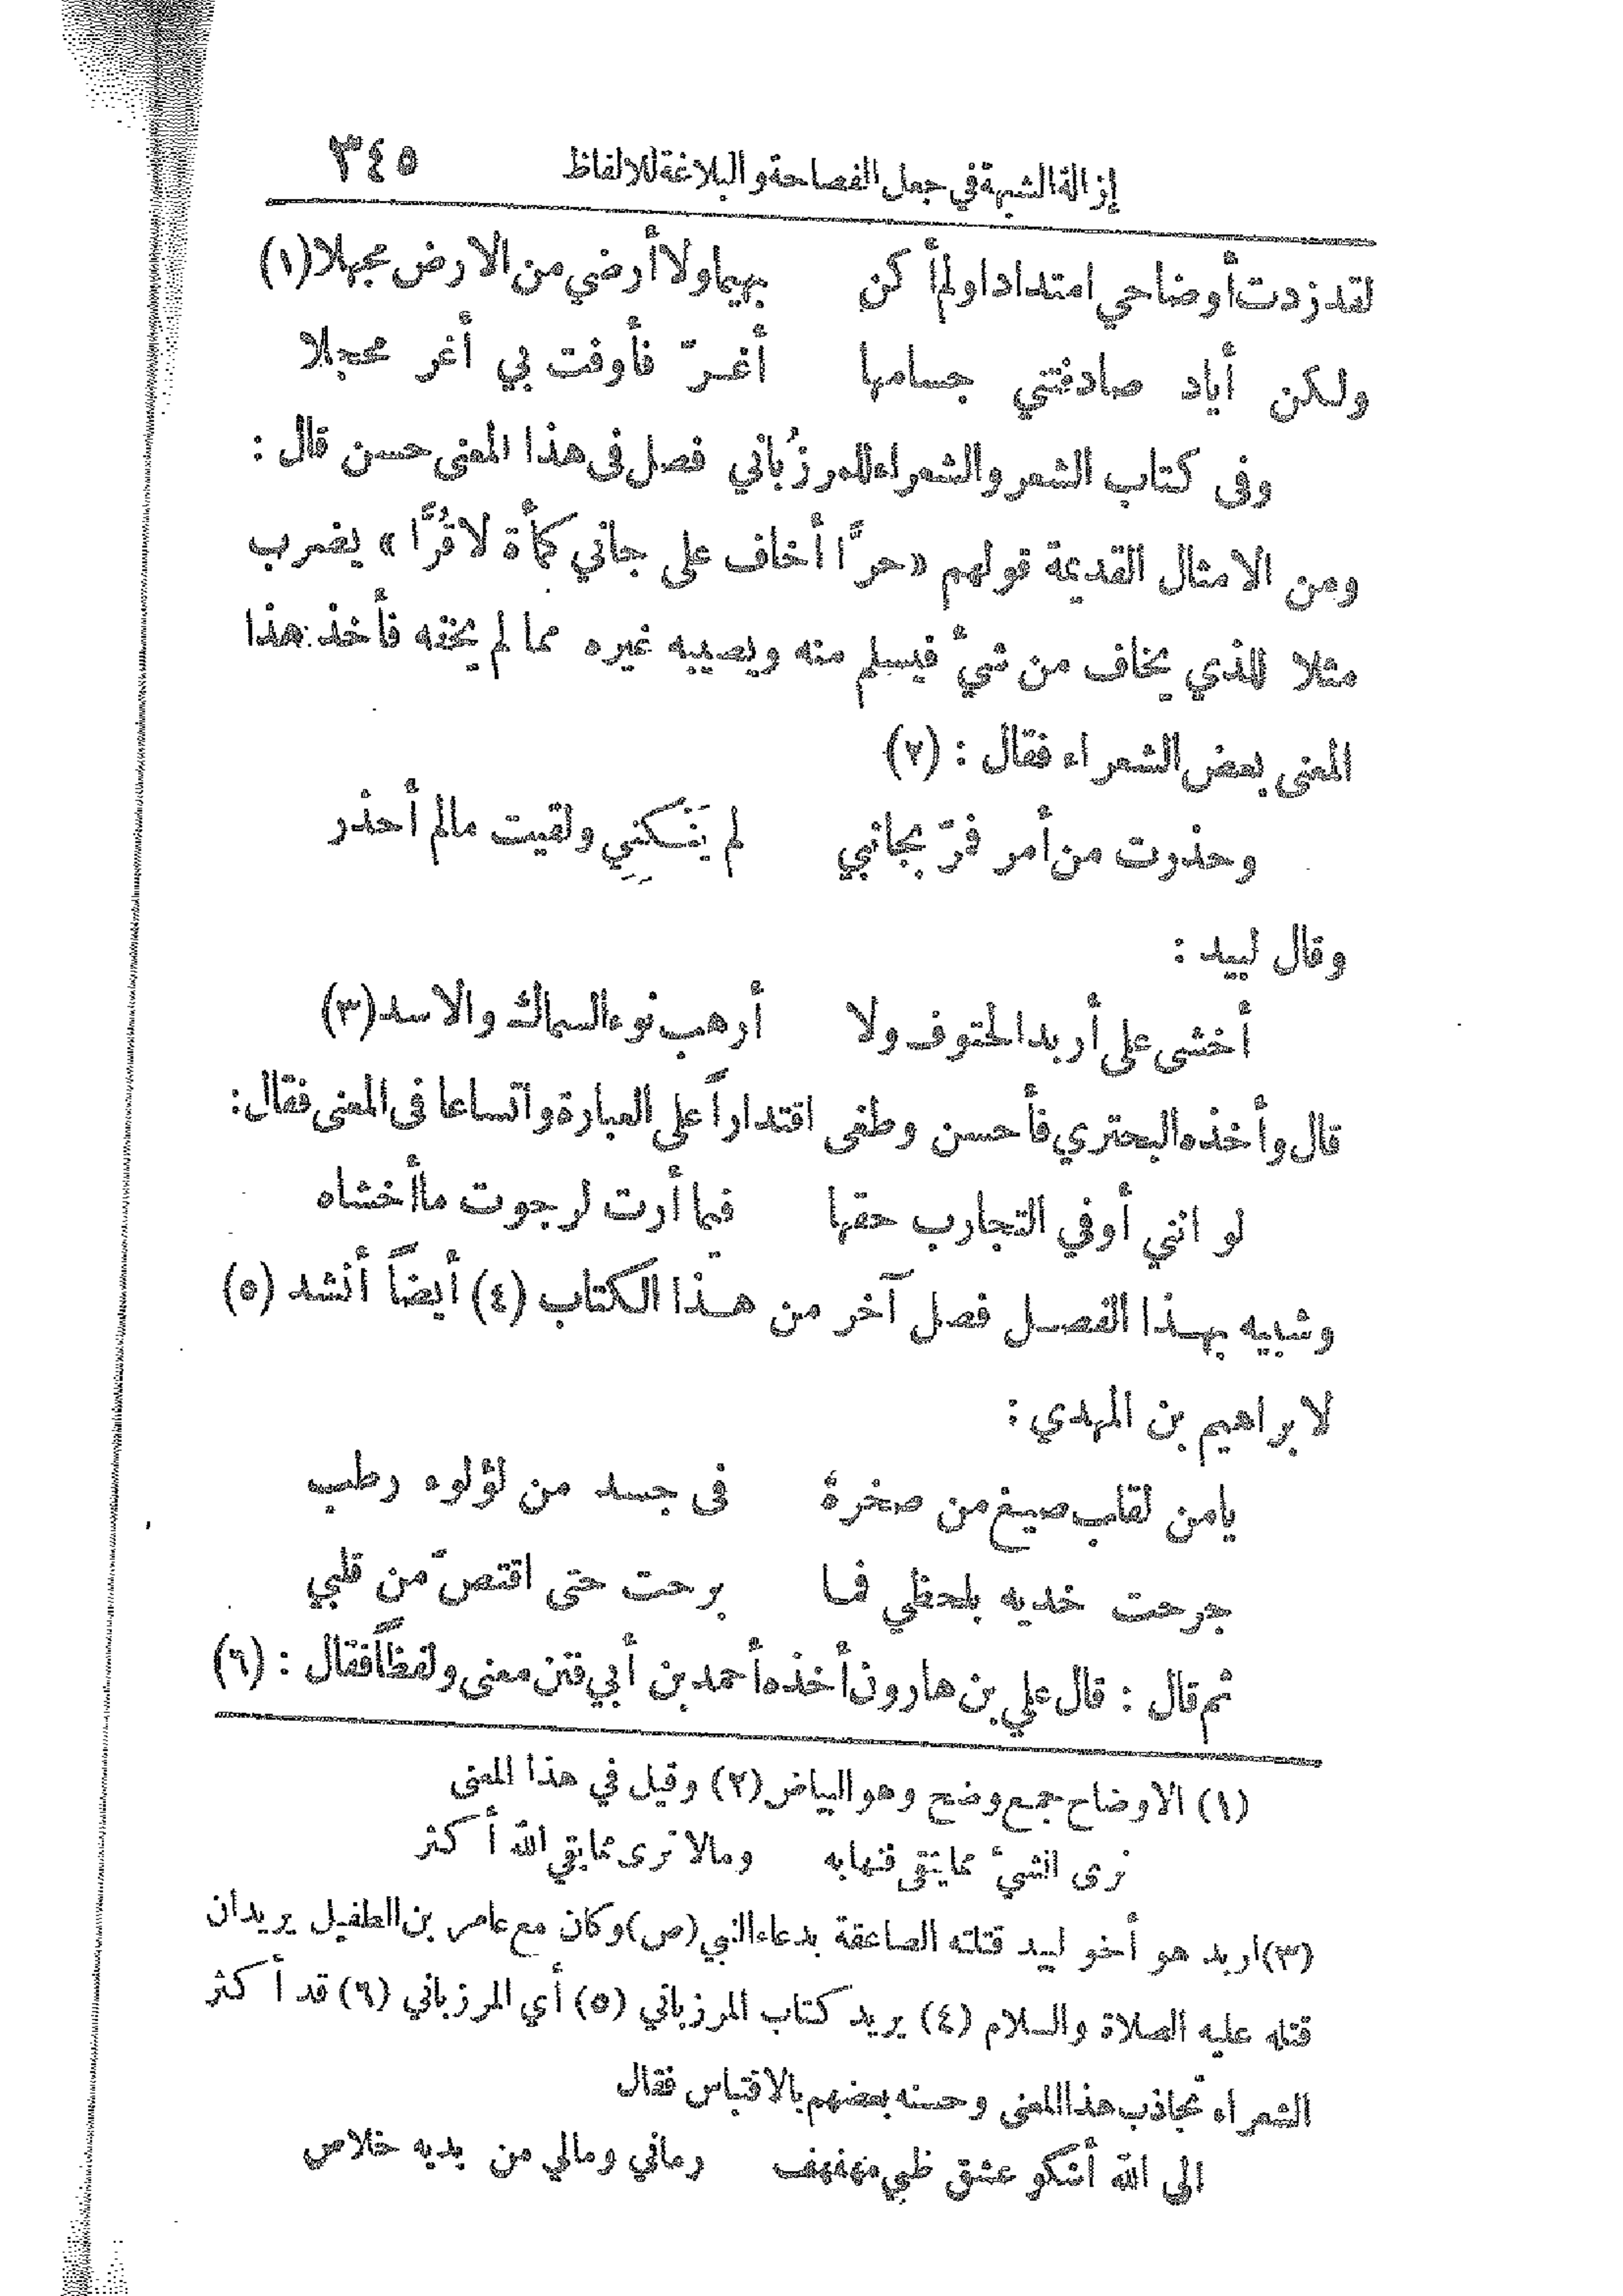 إزالة الشبهة في جعل الفصاحة والبلاغة للالفاظ ٣٤٥
لقد زدت أوضاحي امتدادا ولم أكن بهيما ولا أرضي من الارض مجهلا (١)
ولكن أياد صادفتني جسامها أغرّ فأوفت بي أغر محجلا
وفى كتاب الشعر والشعراء للمرزُباني فصل فى هذا المعنى حسن قال :
ومن الامثال القديمة قولهم «حرًّا أخاف على جاني كمأة لا قُرًّا » يضرب
مثلا للذي يخاف من شيء فيسلم منه ويصيبه غيره مما لم يخفه فأخذ هذا
المعنى بعض الشعراء فقال : (٢)
وحذرت من أمر فمرّ بجانبي لم يَنْكِني ولقيت مالم أحذر
وقال لبيد :
أخشى على أربد الحتوف ولا أرهب نوء السماك والاسد (٣)
قال وأخذه البحتري فأحسن وطغى اقتداراً على العبارة واتساعا فى المعنى فقال:
لو انني أوفي التجارب حقها فيما أرت لرجوت ماأخشاه
وشبيه بهـذا الفصـل فصل آخر من هـذا الكتاب (٤) أيضاً أنشد (٥)
لابراهيم بن المهدي :
يامن لقلب صيغ من صخرة فى جسد من لؤلوء رطب
جرحت خديه بلحظي فما برحت حتى اقتصّ من قلبي
ثم قال : قال علي بن هارون أخذه أحمد بن أبي فنن معنى ولفظاً فقال : (٦)
(١) الاوضاح جمع وضح وهو البياض (٢) وقيل في هذا المعنى
نرى الشيء مما يتقى فنهابه ومالا نرى مما يقي الله أكثر
(٣) اربد هو أخو لبيد قتلته الصاعقة بدعاء النبي (ص) وكان مع عامر بن الطفيل يريدان
قتله عليه الصلاة والسلام (٤) يريد كتاب المرزباني (٥) أي المرزباني (٦) قد أكثر
الشعراء تجاذب هذا المعنى وحسنه بعضهم بالاقتباس فقال
الى الله أشكو عشق ظبي مهفهف رماني ومالي من يديه خلاص